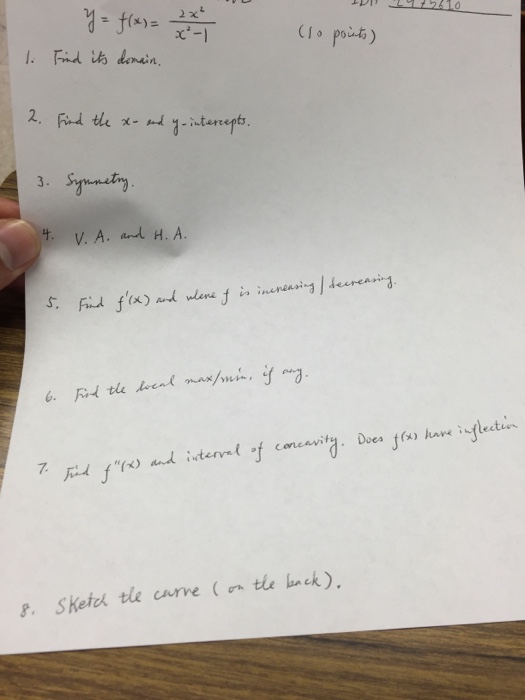 y = f(x) = 2x² / x²-1
(10 points)
1. Find its domain.
2. Find the x- and y-intercepts.
3. Symmetry.
4. V. A. and H. A.
5. Find f'(x) and where f is increasing / decreasing.
6. Find the local max/min, if any.
7. Find f"(x) and interval of concavity. Does f(x) have inflection
8. Sketch the curve (on the back).